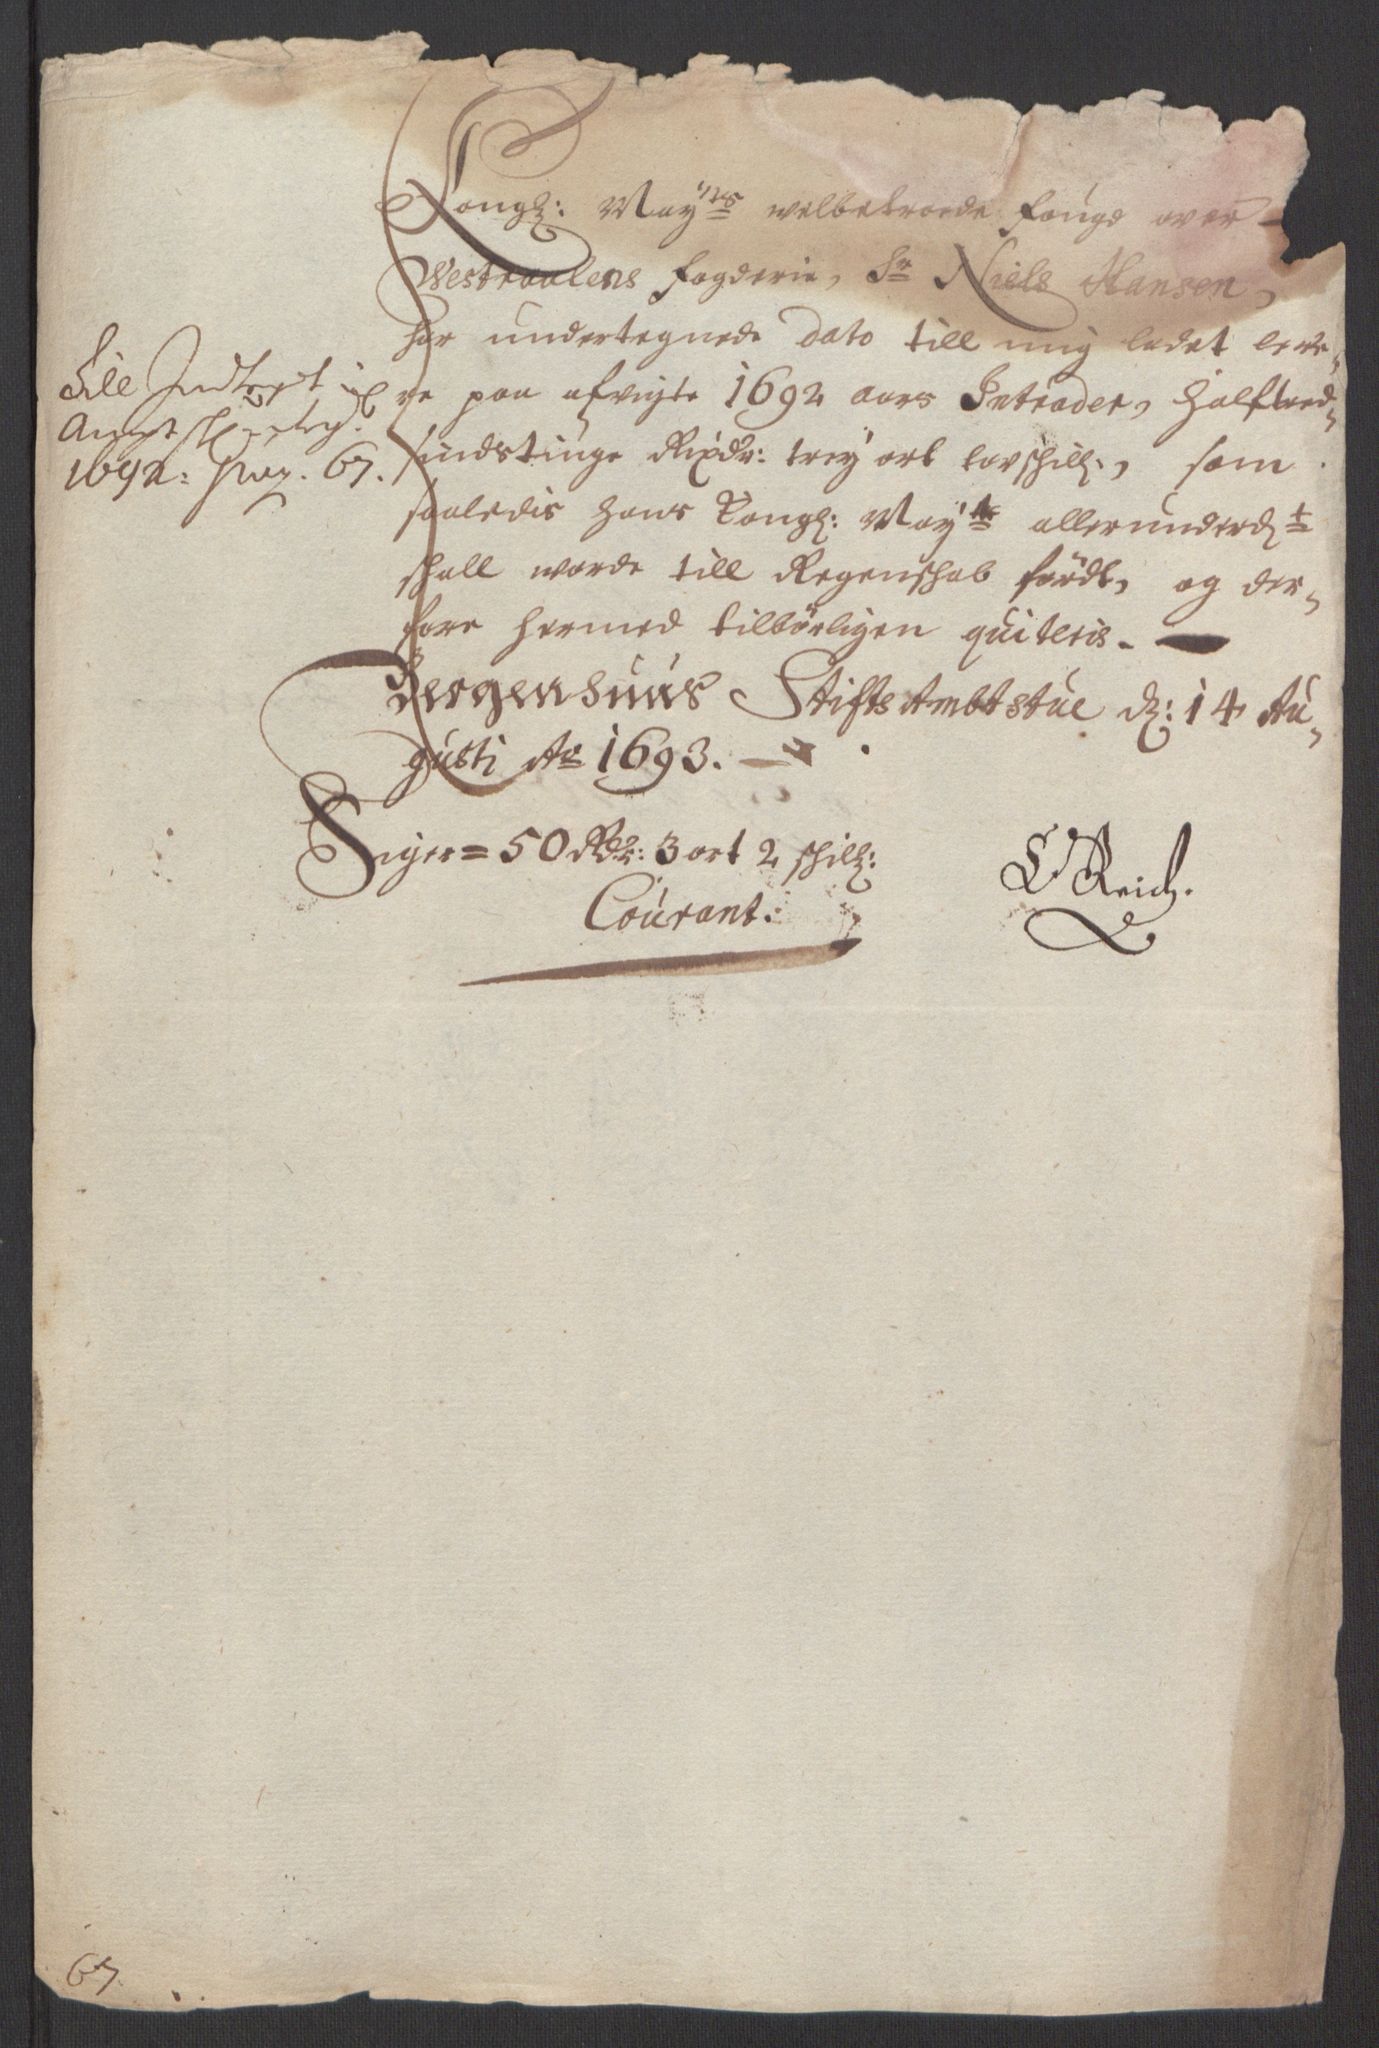 Kongl: May:ts welbetroede fougd over
Westraalens fogderie, Sr Niels Hansen,
har undertegnede dato till mig ladet leve-
re paa afvigte 1692 aars Intrader, halftred-
sindstiuge Rixdr: trey ort tovschill:, som
saaledis hans Kongl: May:ts allerunderd:t
schall worde till Regenschab fördt, og der-
fore hermed tilbörligen quiteris.
Bergenhuus Stifts Ambtstue d: 14 Au-
gusti Ao 1693.
Siger = 50 Rdr: 3 ort 2 schill:
Courant.
Reich.
Till Indtegt
1692: pag. 67.
67